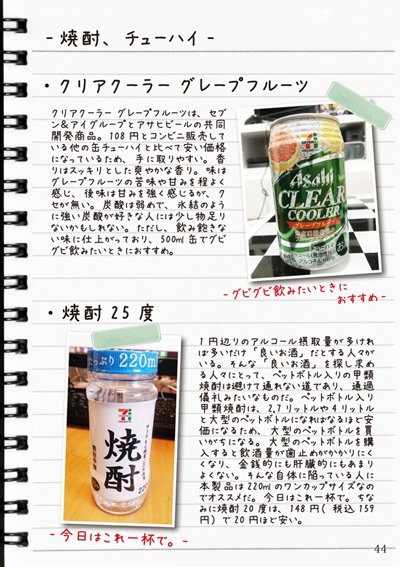 - 焼酎、チューハイ -
・クリアクーラー グレープフルーツ
クリアクーラー グレープフルーツは、セブ
ン&アイグループとアサヒビールの共同
開発商品。108円とコンビニ販売して
いる他の缶チューハイと比べて安い価格
になっているため、手に取りやすい。香
りはスッキリとした爽やかな香り。味は
グレープフルーツの苦味や甘みを程よく
感じ、後味は甘みを強く感じるが、ク
セが無い。炭酸は弱めで、氷結のよう
に強い炭酸が好きな人には少し物足り
ないかもしれない。ただし、飲み飽きな
い味に仕上がっており、500ml缶でグビグ
ビ飲みたいときにおすすめ。
Asahi
CLEAR
COOLER
グレープフルーツ
-グビグビ飲みたいときに
おすすめ-
・焼酎25度
1円辺りのアルコール摂取量が多けれ
ば多いだけ「良いお酒」だとする人々が
いる。そんな「良いお酒」を探し求め
る人々にとって、ペットボトル入りの甲類
焼酎は避けて通れない道であり、通過
儀礼みたいなものだ。ペットボトル入り
甲類焼酎は、2.7リットルや4リットル
と大型のペットボトルになればなるほど安
価になるため、大型のペットボトルを買
いがちになる。大型のペットボトルを購
入すると飲酒量が歯止めがかかりにく
くなり、金銭的にも肝臓的にもあまり
よくない。そんな自体に陥っている人に
本製品は220mlのワンカップサイズなの
でオススメだ。今日はこれ一杯で。ちな
みに焼酎20度は、148円(税込159
円)で20円ほど安い。
たっぷり 220ml
焼酎
-今日はこれ一杯で。-
44